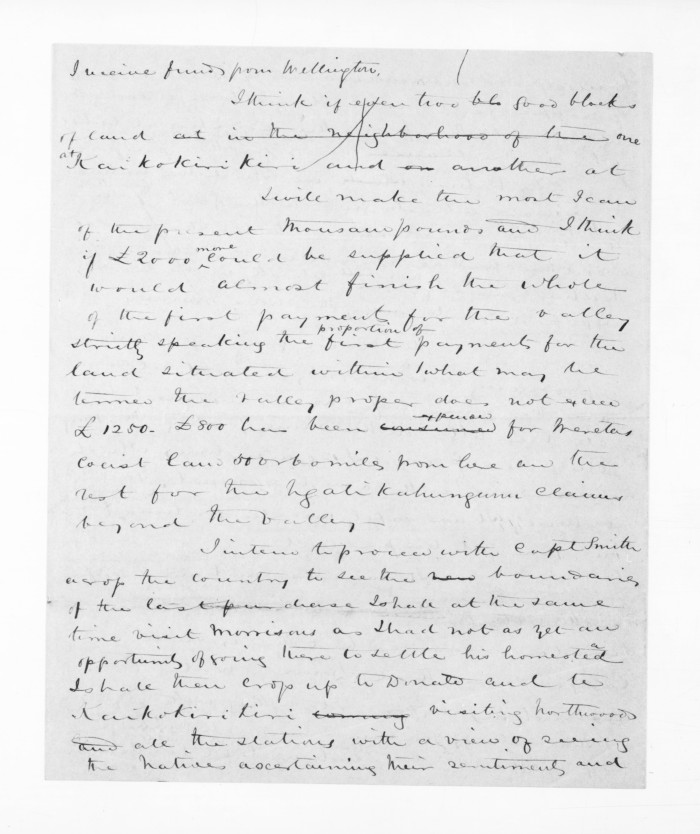 I receive funds from Wellington.
I think if even two bls good blocks
of land at in the neighborhood of the one
at Kaikokirikiri and on another at
I will make the most I can
of the present thousand pounds and I think
if £2000 more could be supplied that it
would almost finish the whole
of the first payment for the valley
strictly speaking the proportion of first payments for the
land situated within what may be
termed the valley proper does not exceed
£1250 - £800 has been consumed expended for Weretas
coast land 50 or 60 miles from here and the
rest for the Ngatikahungunu claims
beyond the valley -
I intend to proceed with Capt Smith
across the country to see the new boundaries
of the last purchase I shall at the same
time visit Morrisons as I had not as yet an
opportunity of going there to settle his homestead
I shall then cross up to Donald and to
Kaikokirikiri coming visiting Northwoods
and all the stations with a view of seeing
the Natives ascertaining their sentiments and